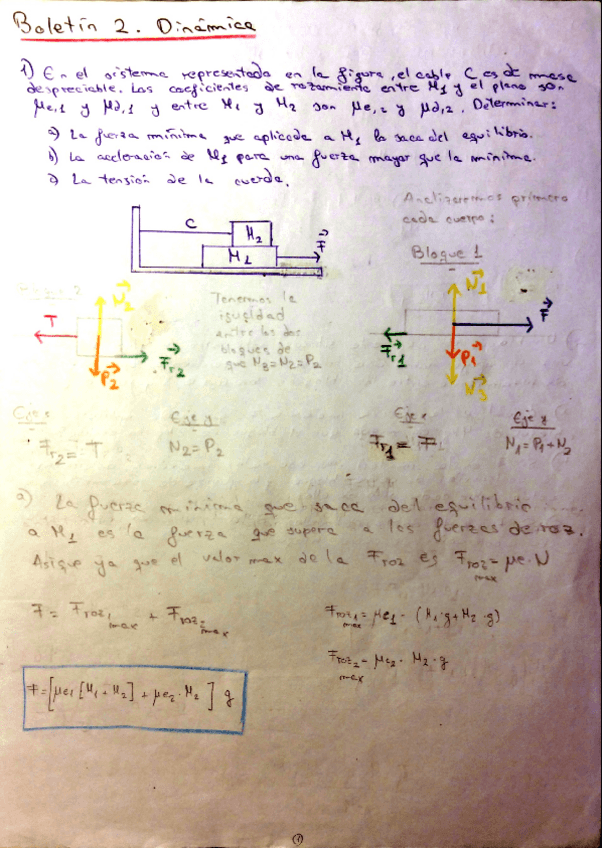 Boletín 2. Dinámica
1) En el sistema representado en la figura, el cable C es de masa
despreciable. Los coeficientes de rozamiento entre M1 y el plano son
μe,1 y μd,1 y entre M1 y M2 son μe,2 y μd,2. Determinar:
a) La fuerza mínima que aplicada a M1 la saca del equilibrio.
b) La aceleración de M1 para una fuerza mayor que la mínima.
c) La tensión de la cuerda.
Analizaremos primero
cada cuerpo:
C
M2
M1
F
Bloque 1
N2
T
Fr2
P2
Tenemos la
igualdad
entre los dos
bloques de
que N3=N2=P2
N1
F
Fr1
P1
N3
Eje x
Fr2 = T
Eje y
N2=P2
Eje x
Fr1 = F1
Eje y
N1=P1+N2
a) La fuerza mínima que saca del equilibrio
a M1 es la fuerza que supera a las fuerzas de roz.
Asique ya que el valor max de la Froz es Froz max = μe·N
F = Froz1 max + Froz2 max
Froz1 max = μe1 · (M1·g+M2·g)
Froz2 max = μe2 · M2·g
F=[μe1[M1+M2]+μe2·M2] g
1